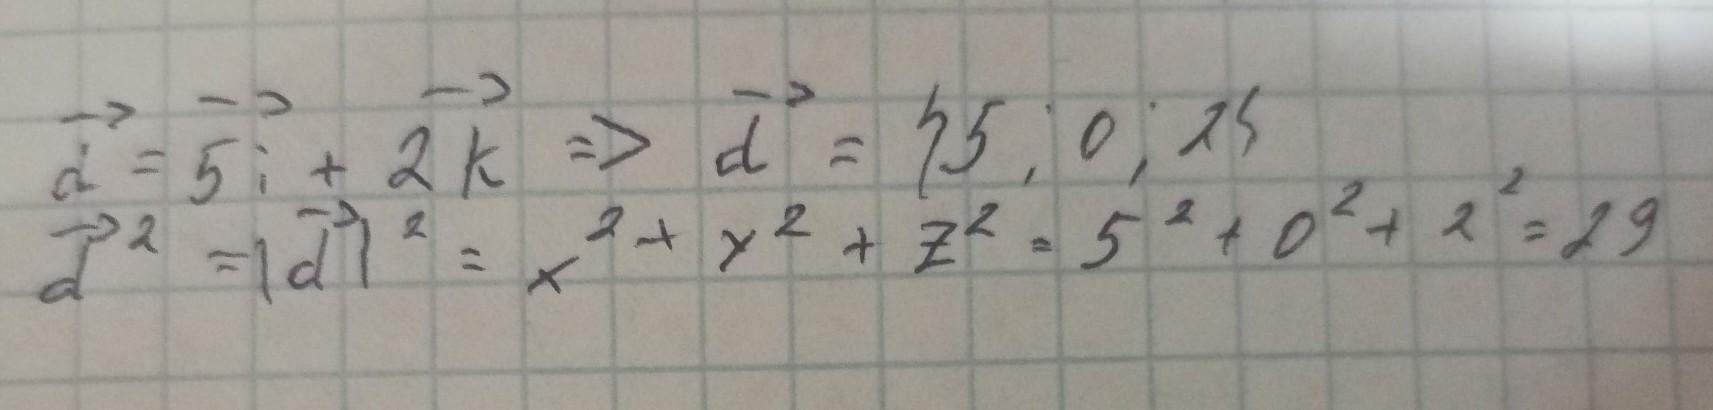 d⃗ = 5i⃗ + 2k⃗ => d⃗ = {5; 0; 2}
d⃗² = |d⃗|² = x² + y² + z² = 5² + 0² + 2² = 29